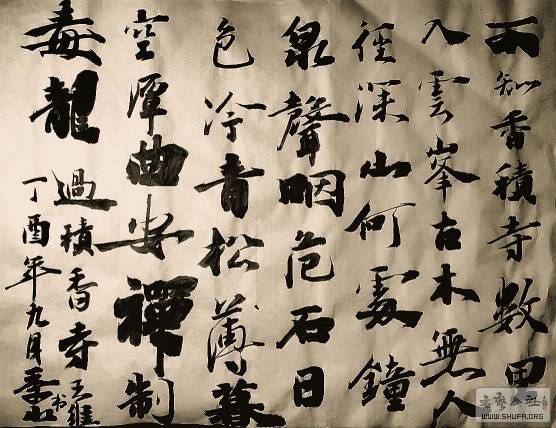 不知香積寺數里
入雲峯古木無人
徑深山何處鐘
泉聲咽危石日
色冷青松薄暮
空潭曲安禪制
毒龍
過積香寺 王維
丁酉年九月 书
WWW.SHUFA.ORG